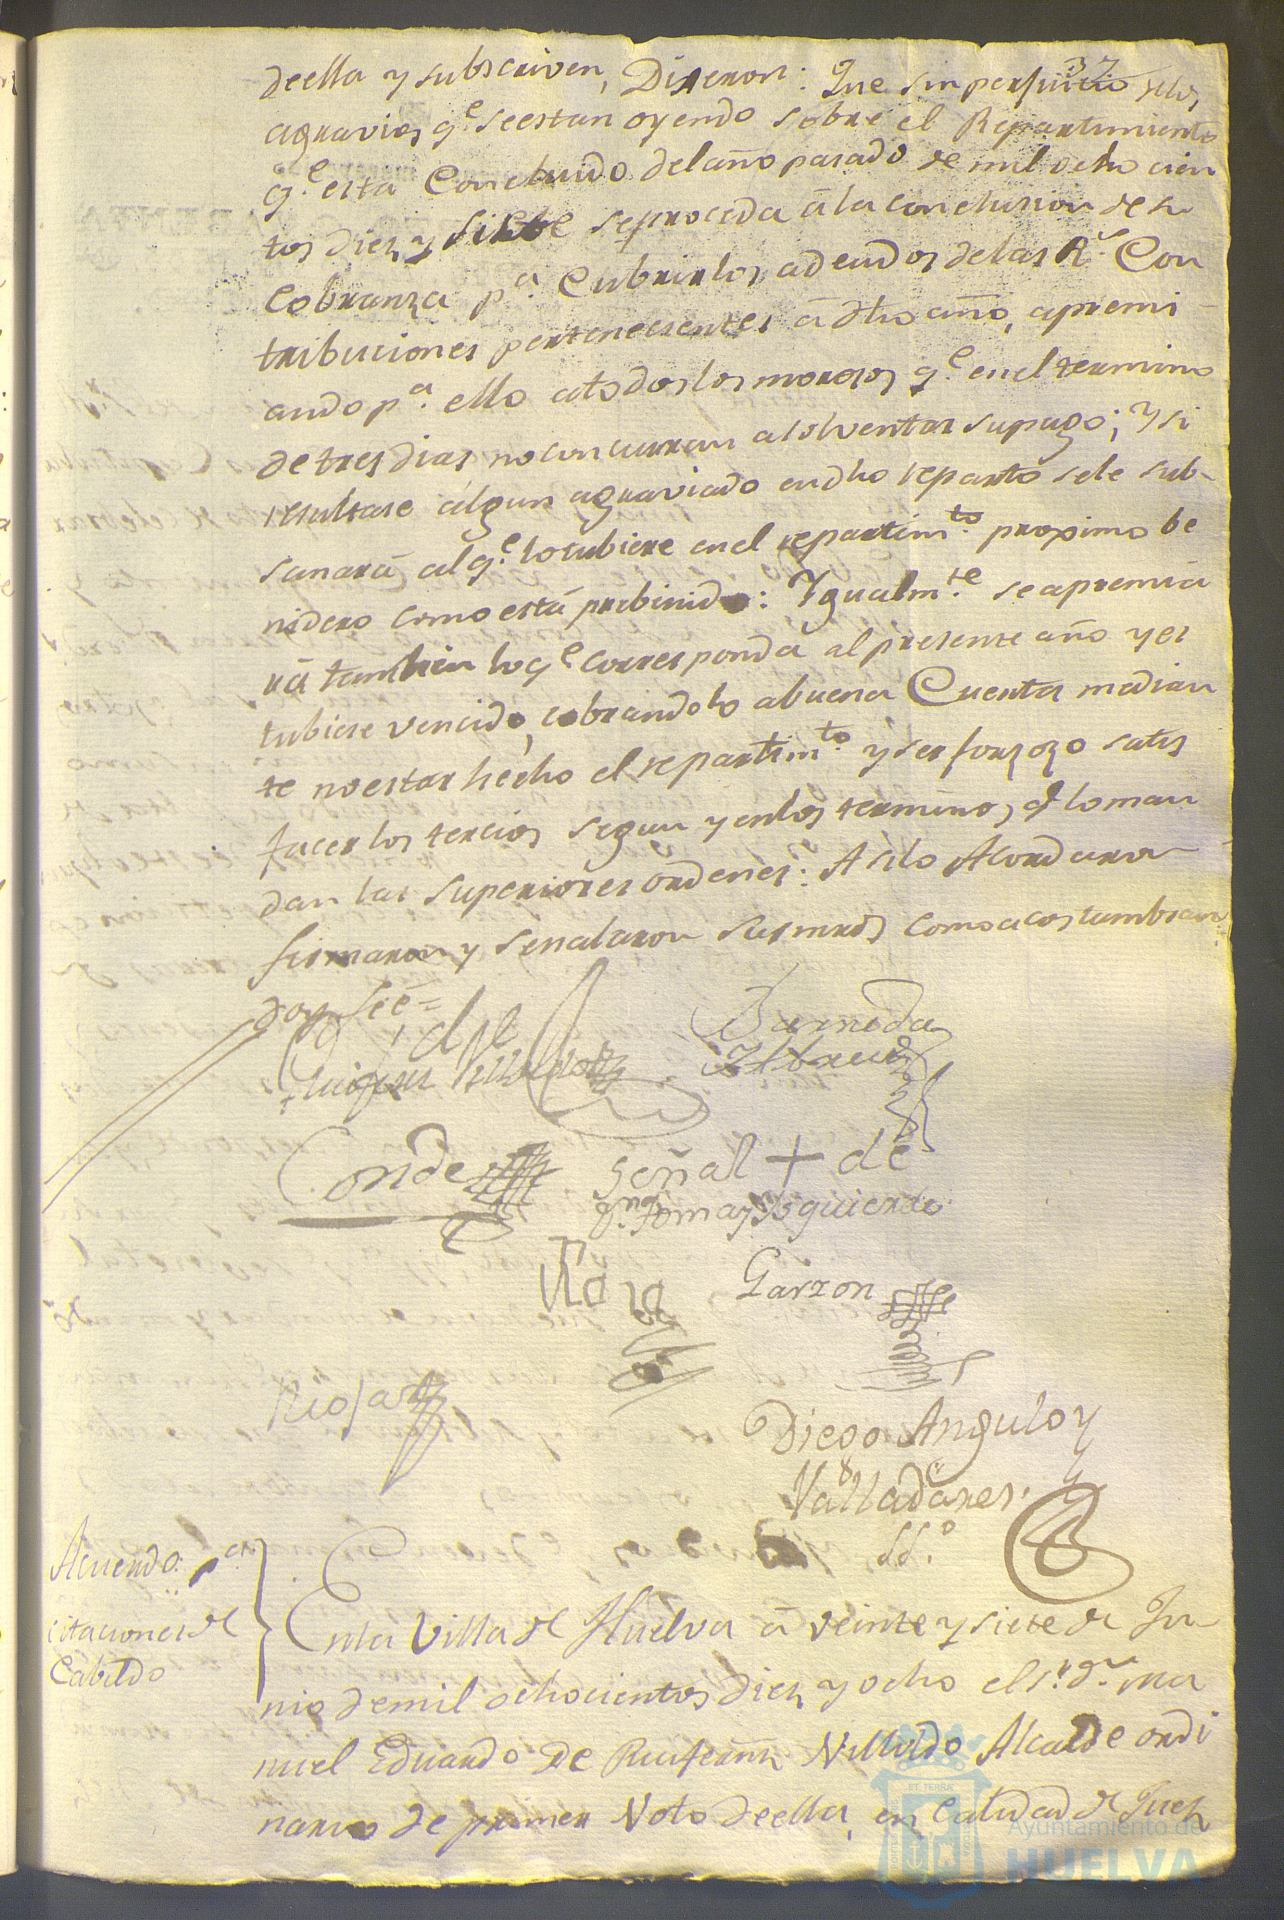 37
deella y subscriven, Dixeron: Que sin perjuicio delos
agravios q.e seestan oyendo sobre el Repartimiento
q.e esta Concluido delaño pasado de mil ocho cien
tos diez y siete seproceda â la conclusion de su
Cobranza p.a Cubrir los adeudos delas R.s Con
tribuciones pertenecientes â dho año, apremi
ando p.a ello atodos los morosos q.e enel termino
de tres dias no concurran asolventar supago; Y si
resultase algun agraviado endho reparto sele sub-
sanarâ alq.e lotubiere enel repartim.to proximo be
nidero como està prebenido: Ygualm.te se apremia
râ tambien loq.e corresponda al presente año y es
tubiere vencido, cobrandolo abuena Cuenta median
te noestar hecho el repartim.to y ser forzozo satis
facer los tercios segun y enlos terminos q.e loman
dan las Superiores ordenes: Asilo Acordaron
firmaron y señalaron susmrds como acostumbran
doy feè=
Barneda
Conde
señal + de
Tomas Ysquierdo
Garzon
Diego Angulo y
Valladares.
SS.o
Acuerdo p.a
citaciones de
Cabildo
Enla Villa de Huelva â veinte y siete de Ju-
nio demil ochocientos diez y ocho el s.r d.n Ma
nuel Eduardo de Ruifernz Villoldo Alcalde ordi
nario de primer Voto deella, en Calidad de Juez
ET TERRÆ
Ayuntamiento de
HUELVA